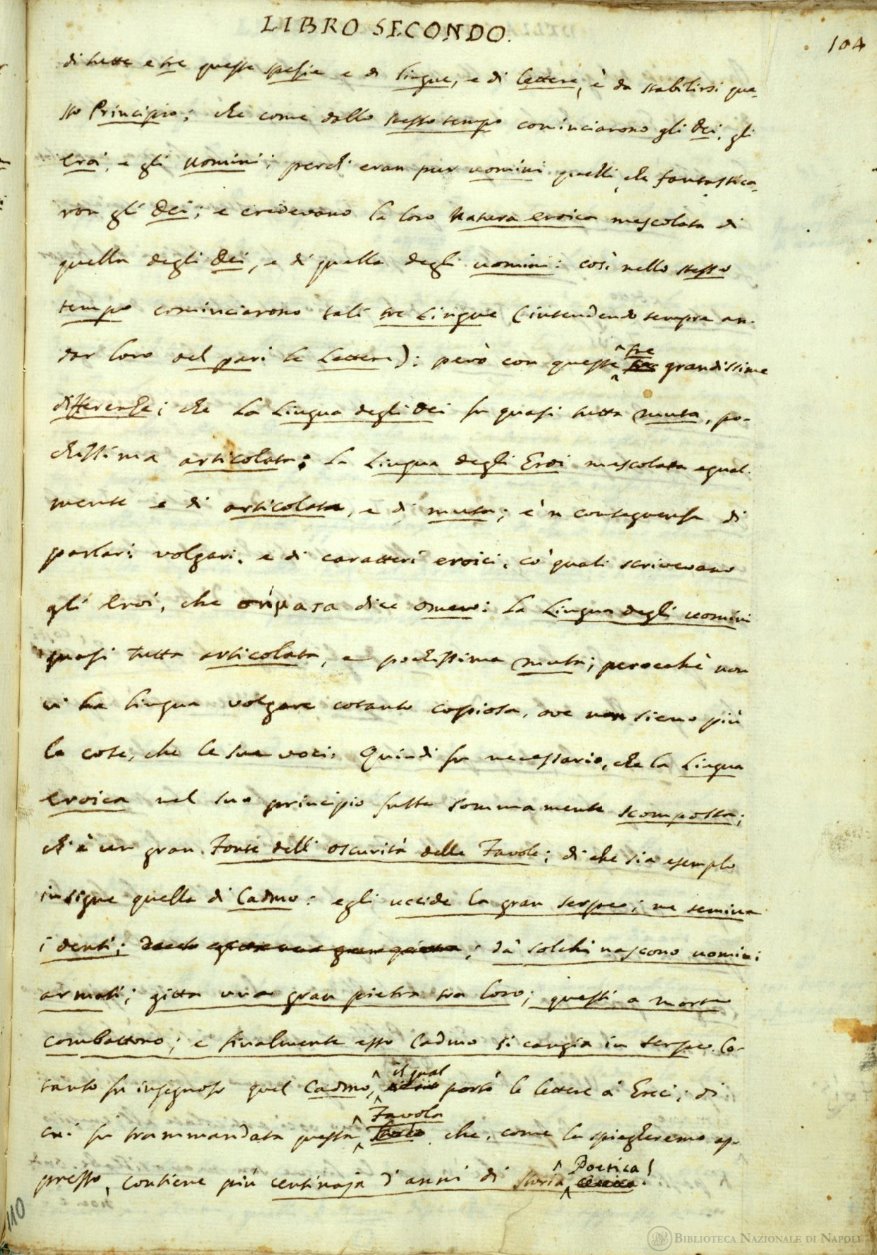 LIBRO SECONDO.
104
di tutte e tre queste spezie e di lingue, e di lettere, è da stabilirsi que-
sto Principio; che come dallo stesso tempo cominciarono gli Dei, gli
Eroi, e gli Uomini; perch' eran pur uomini quelli, che fantastica-
ron gli Dei; e credevano la loro natura eroica mescolata di
quella degli Dei, e di quella degli uomini: così nello stesso
tempo cominciarono tali tre Lingue (intendendo sempre an-
dar loro del pari le Lettere): però con queste tre grandissime
differenze; che La Lingua degli Dei fu quasi tutta muta, po-
chissima articolata; La Lingua degli Eroi mescolata egual-
mente e di articolata, e di muta; e 'n conseguenza di
parlari volgari, e di caratteri eroici, co' quali scrivevano
gli Eroi, che σήματα dice Omero: La Lingua degli uomini
quasi tutta articolata, e pochissima muta; perocchè non
vi ha lingua volgare cotanto copiosa, ove non sieno più
le cose, che le sue voci. Quindi fu necessario, che la Lingua
eroica nel suo principio fusse sommamente scomposta;
ch' è un gran Fonte dell' oscurità delle Favole; di che sia esemplo
insigne quella di Cadmo: egli uccide la gran serpe; ne semina
i denti; da' solchi nascono uomini
armati; gitta una gran pietra tra loro; questi a morte
combattono; e finalmente esso Cadmo si cangia in serpe. Co-
tanto fu ingegnoso quel Cadmo, il qual portò le lettere a' Greci; di
cui fu trammandata questa Favola che, come la spiegheremo ap-
presso, contiene più centinaja d' anni di storia Poetica!
110
BIBLIOTECA NAZIONALE DI NAPOLI